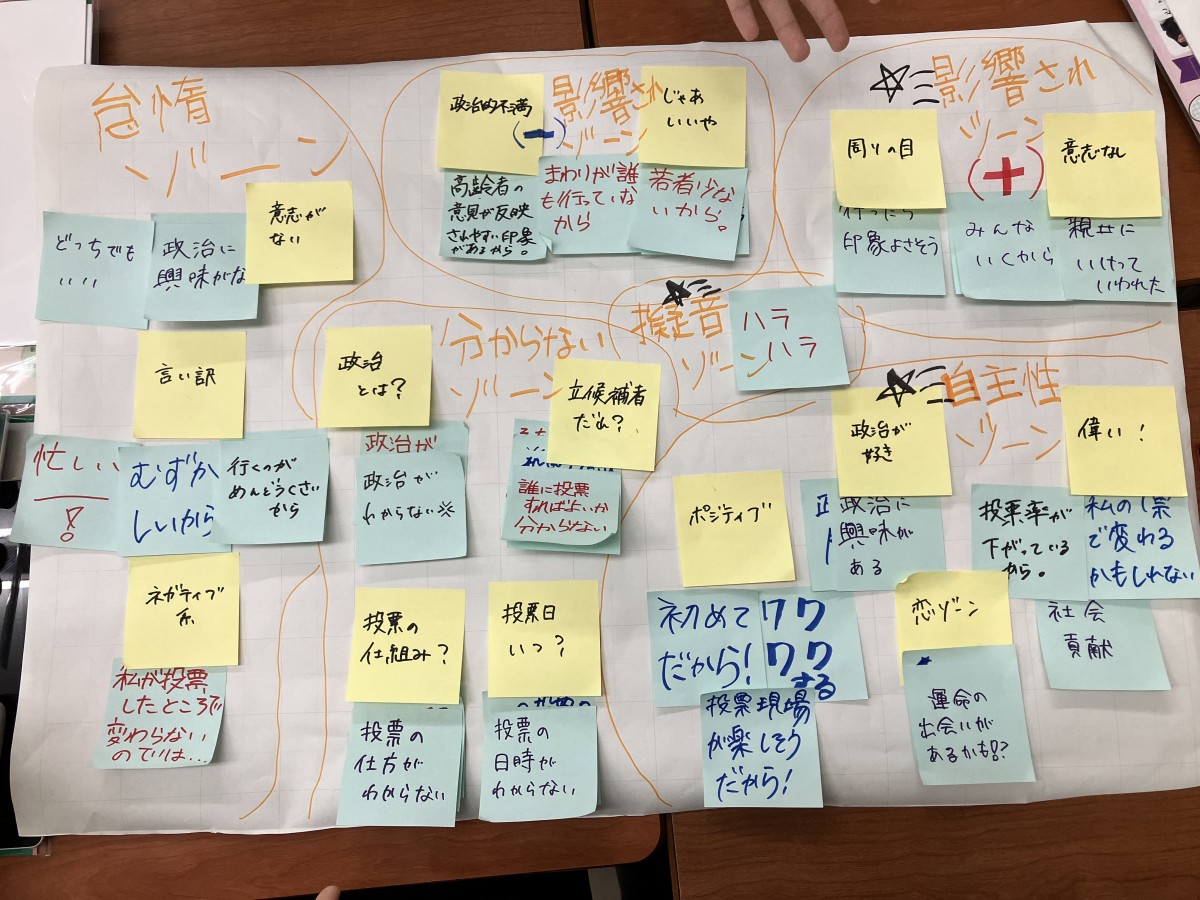 怠惰
ゾーン
意志が
ない
どっちでも
いい
政治に
興味がな
言い訳
忙しい
!
むずか
しいから
行くのが
めんどうくさい
から
ネガティブ
系
私が投票
したところで
変わらない
のでは…
影響され
ゾーン
(ー)
政治的不満
高齢者の
意見が反映
されやすい印象
があるから。
まわりが誰
も行っていな
から
じゃあ
いいや
若者少な
いから。
影響され
ゾーン
(+)
周りの目
行ったら
印象よさそう
みんな
いくから
意志なし
親せに
いけって
いわれた
分からない
ゾーン
政治
とは?
政治が
政治が
わからない※
立候補者
だれ?
誰に投票
すればよいか
分からない
投票の
仕組み?
投票の
仕方が
わからない
投票日
いつ?
投票の
日時が
わからない
擬音
ゾーン
ハラ
ハラ
自主性
ゾーン
政治が
好き
政治に
興味が
ある
偉い!
投票率が
下がっている
から。
私の1票
で変わる
かもしれない
社会
貢献
ポジティブ
初めて
だから!
ワク
ワク
する
投票現場
が楽しそう
だから!
恋ゾーン
運命の
出会いが
あるかも!?